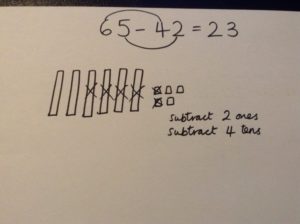 65 - 42 = 23
subtract 2 ones
subtract 4 tens